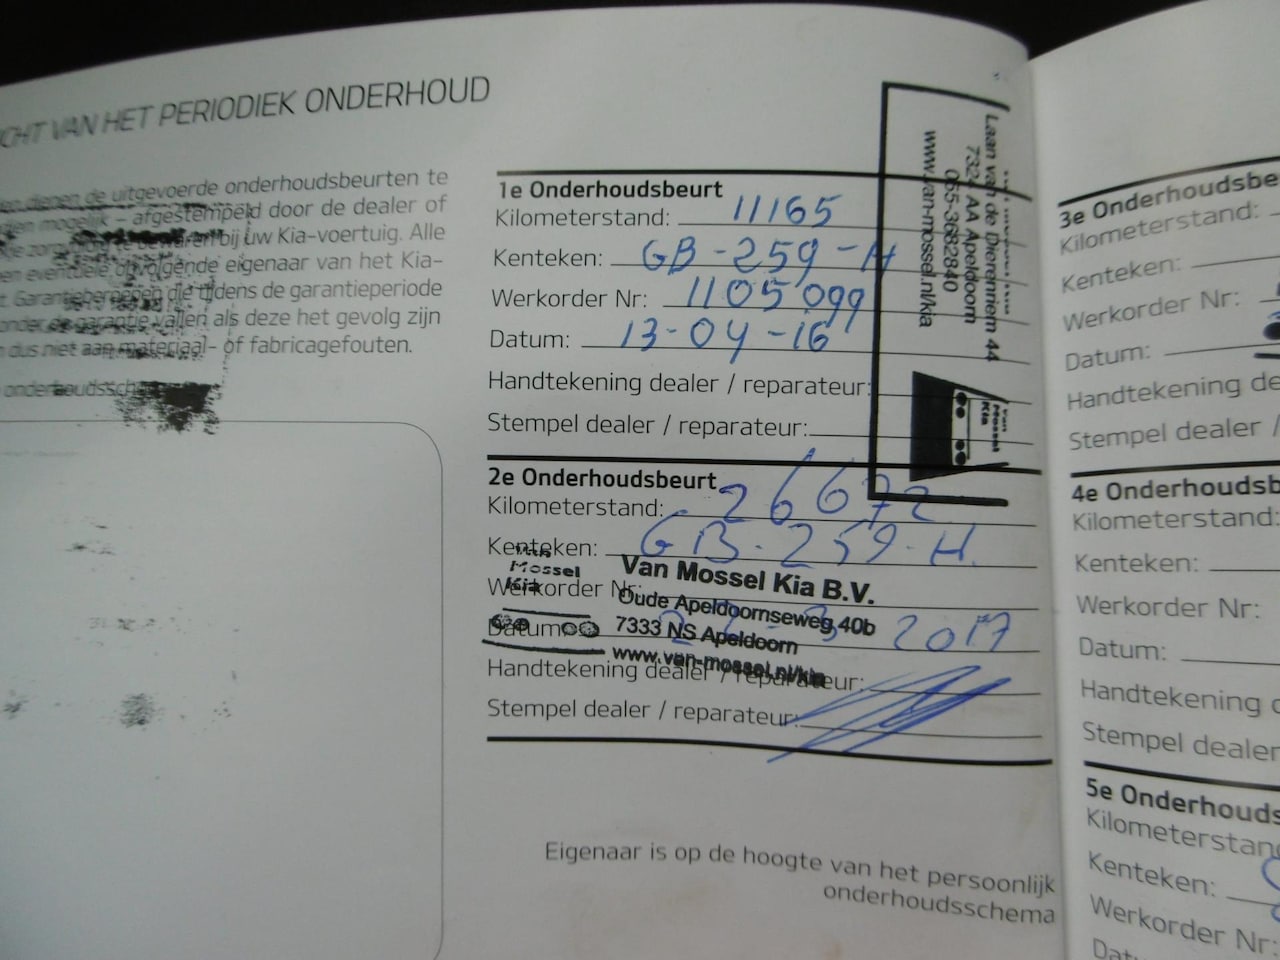 VAN HET PERIODIEK ONDERHOUD
dienen de uitgevoerde onderhoudsbeurten te
mogelijk – afgestempeld door de dealer of
bij uw Kia-voertuig. Alle
eventuele opvolgende eigenaar van het Kia-
Garantieberoepen die tijdens de garantieperiode
onder de garantie vallen als deze het gevolg zijn
dus niet aan materiaal- of fabricagefouten.
1e Onderhoudsbeurt
Kilometerstand: 11165
Kenteken: GB-259-H
Werkorder Nr: 1105099
Datum: 13-04-16
Handtekening dealer / reparateur:
Stempel dealer / reparateur:
Laan van de Dierenriem 44
7324 AA Apeldoorn
055-3682840
www.van-mossel.nl/kia
Van
Mossel
Kia
2e Onderhoudsbeurt
Kilometerstand: 26672
Kenteken: GB-259-H
Werkorder Nr:
Datum: 2017
Handtekening dealer / reparateur:
Stempel dealer / reparateur:
Van
Mossel
Kia
Van Mossel Kia B.V.
Oude Apeldoornseweg 40b
7333 NS Apeldoorn
www.van-mossel.nl/kia
Eigenaar is op de hoogte van het persoonlijk
onderhoudsschema
3e
Kilometerstand:
Kenteken:
Werkorder Nr:
Datum:
Handtekening
Stempel dealer /
4e
Kilometerstand:
Kenteken:
Werkorder Nr:
Datum:
Handtekening
Stempel dealer
5e
Kenteken:
Werkorder Nr: